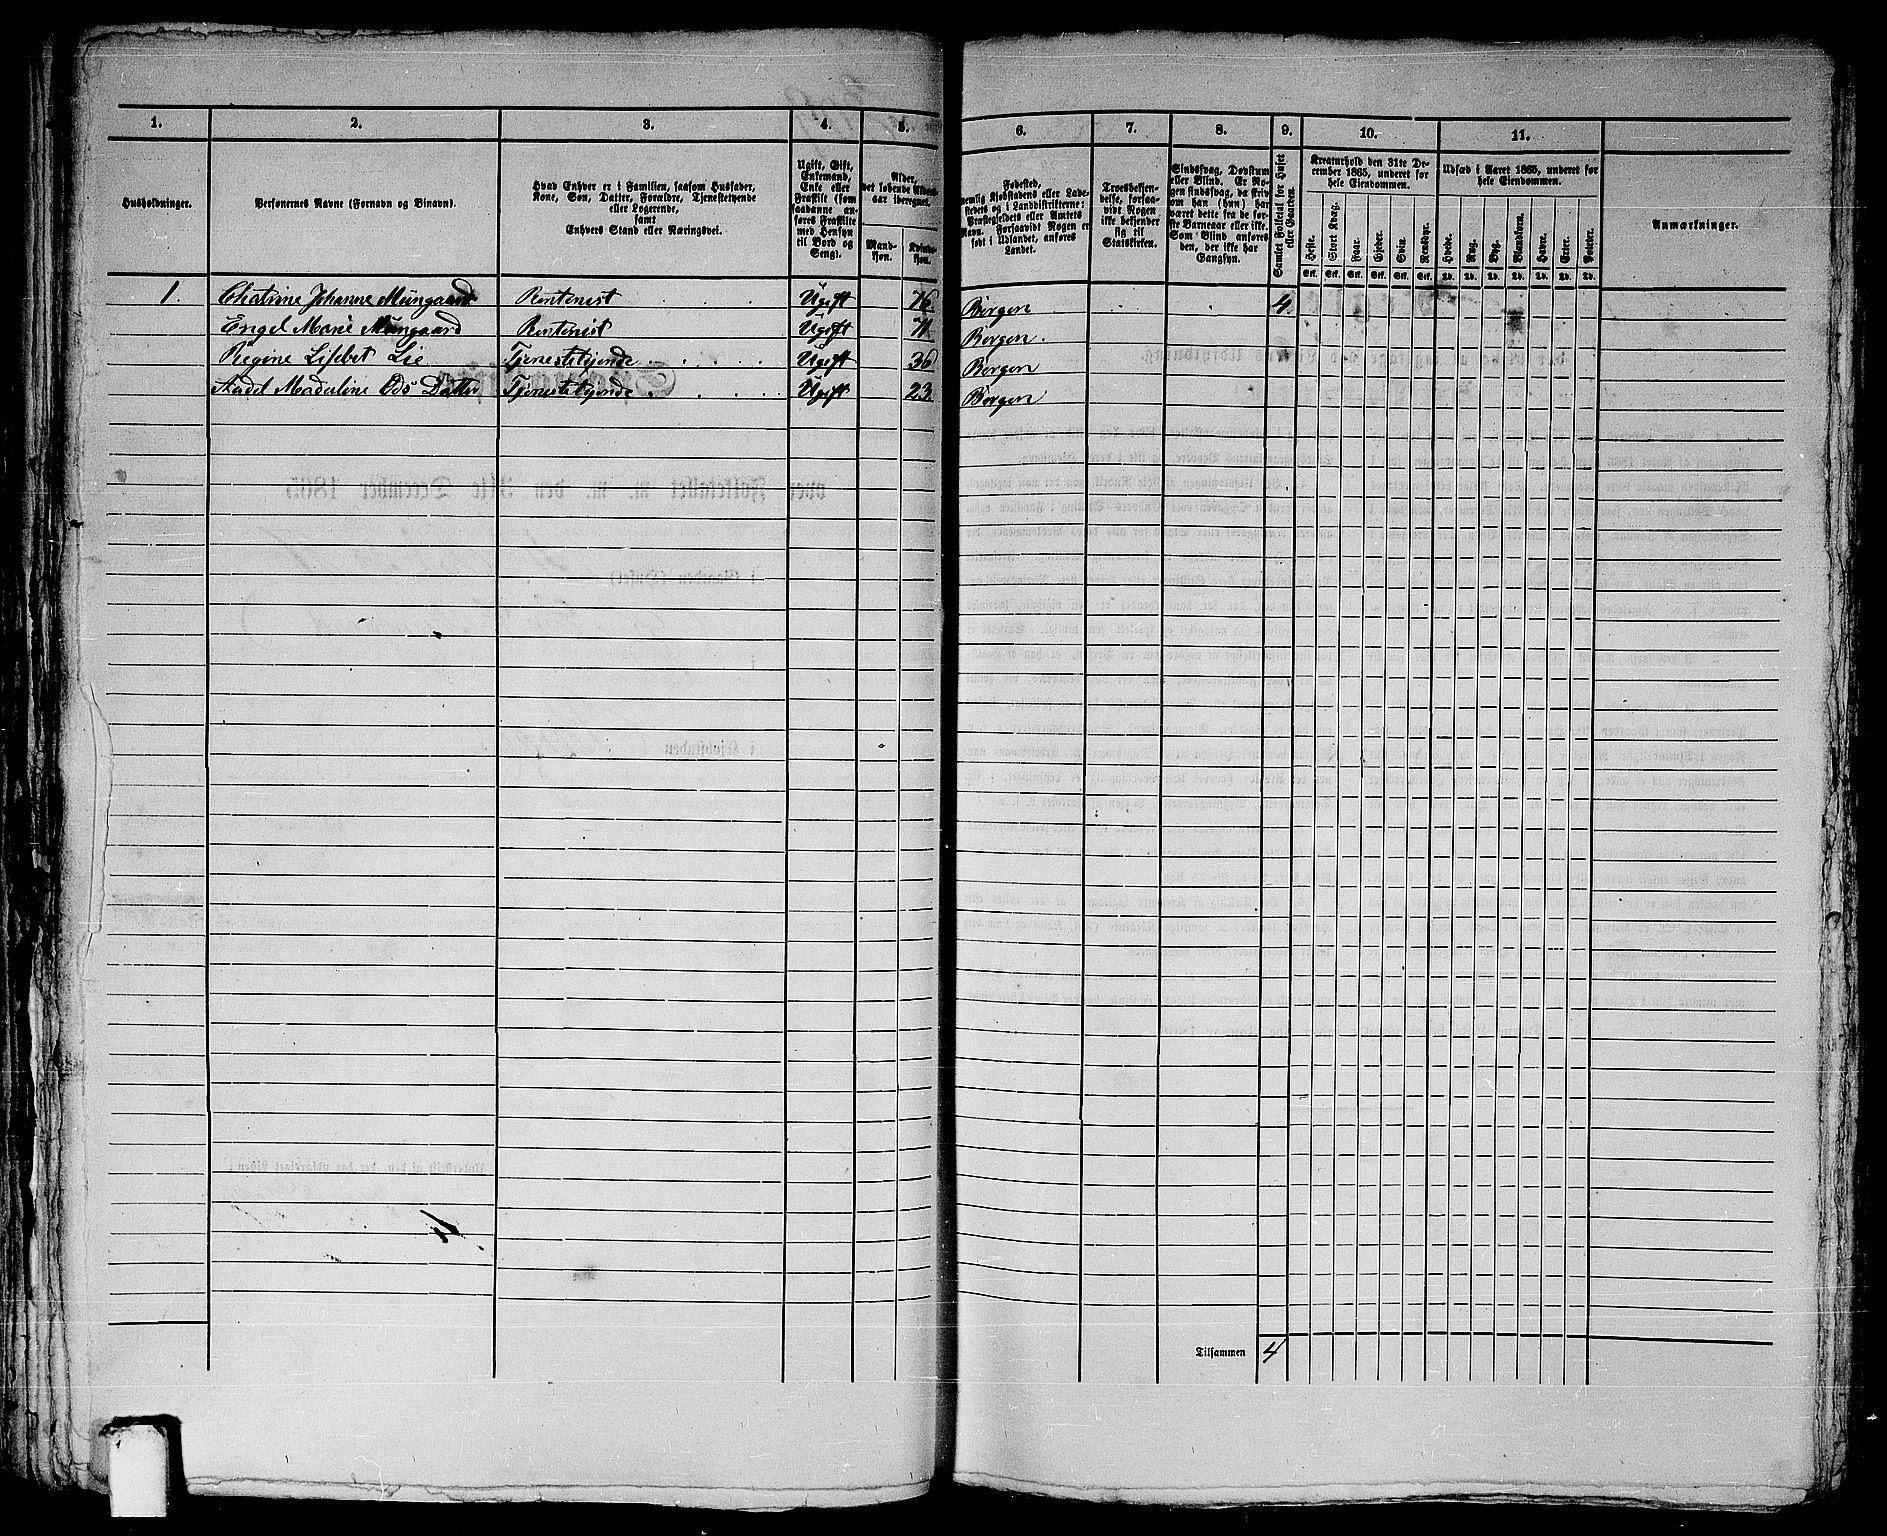 1. 2. 3. 4. 5. 6. 7. 8. 9. 10. 11.
Husholdninger.
Personernes Navne (Fornavn og Binavn).
Hvad Enhver er i Familien, saasom Husfader,
Kone, Søn, Datter, Forældre, Tjenestetyende
eller Logerende,
samt
Enhvers Stand eller Næringsvei.
Ugift, Gift,
Enkemand,
Enke eller
Fraskilt (som
saadanne an-
føres Fraskilte
med Hensyn
til Bord og
Seng).
Alder,
det løbende Alders-
aar iberegnet.
Mand-
kjøn.
Kvinde-
kjøn.
Fødested,
nemlig Kjøbstadens eller Lade-
stedets og i Landdistrikterne:
Præstegjeldets eller Amtets
Navn. Forsaavidt Nogen er
født i Udlandet, anføres
Landet.
Troesbekjen-
delse, forsaa-
vidt Nogen
ikke bekjender
sig til
Statskirken.
Sindssvag, Døvstum
eller Blind. Er No-
gen sindssvag, da skriv
om han (hun) har
været dette fra de før-
ste Barneaar eller ikke.
Som Blind anføres
den, der ikke har
Gangsyn.
Samlet Folketal for Huset
eller Gaarden.
Kreaturhold den 31te De-
cember 1865, underet for
hele Eiendommen.
Heste. Stort Kvæg. Faar. Gjeder. Svin. Rensdyr.
Udsæd i Aaret 1865, underet for
hele Eiendommen.
Hvede. Rug. Byg. Blandkorn. Havre. Erter. Poteter.
Anmærkninger.
Stk. Stk. Stk. Stk. Stk. Stk. Td. Td. Td. Td. Td. Td. Td.
1. Chatrine Johanne Müngaard Rentenist Ugift 76 Bergen 4
Engel Marie Müngaard Rentenist Ugift 71 Bergen
Regene Lisebet Lie Tjenestetyende Ugift 36 Bergen
Aadel Madeline Ods Datter Tjenestetyende Ugift 23 Bergen
Tilsammen 4